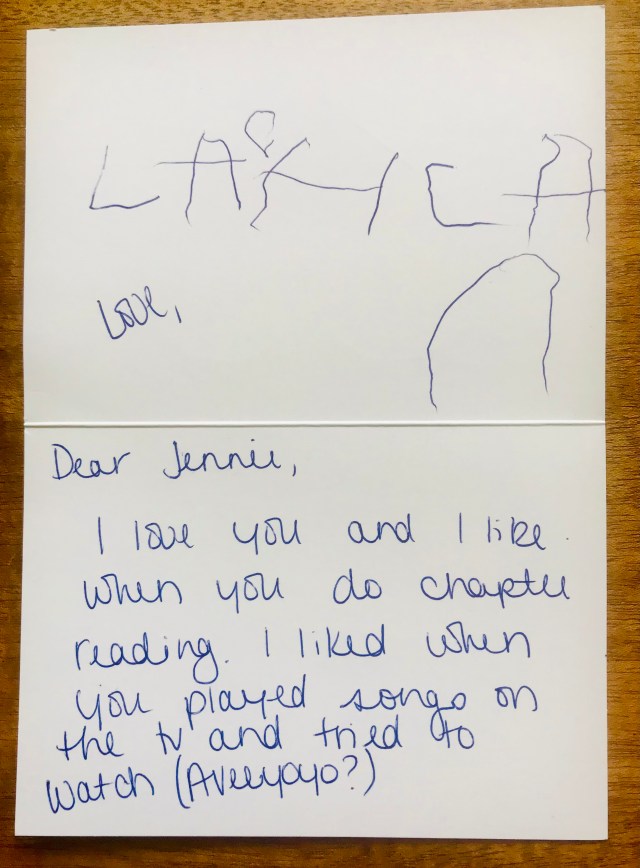 Love,
Dear Jennie,
I love you and I like
when you do chapter
reading. I liked when
you played songs on
the tv and tried to
watch (Aveeyoyo?)